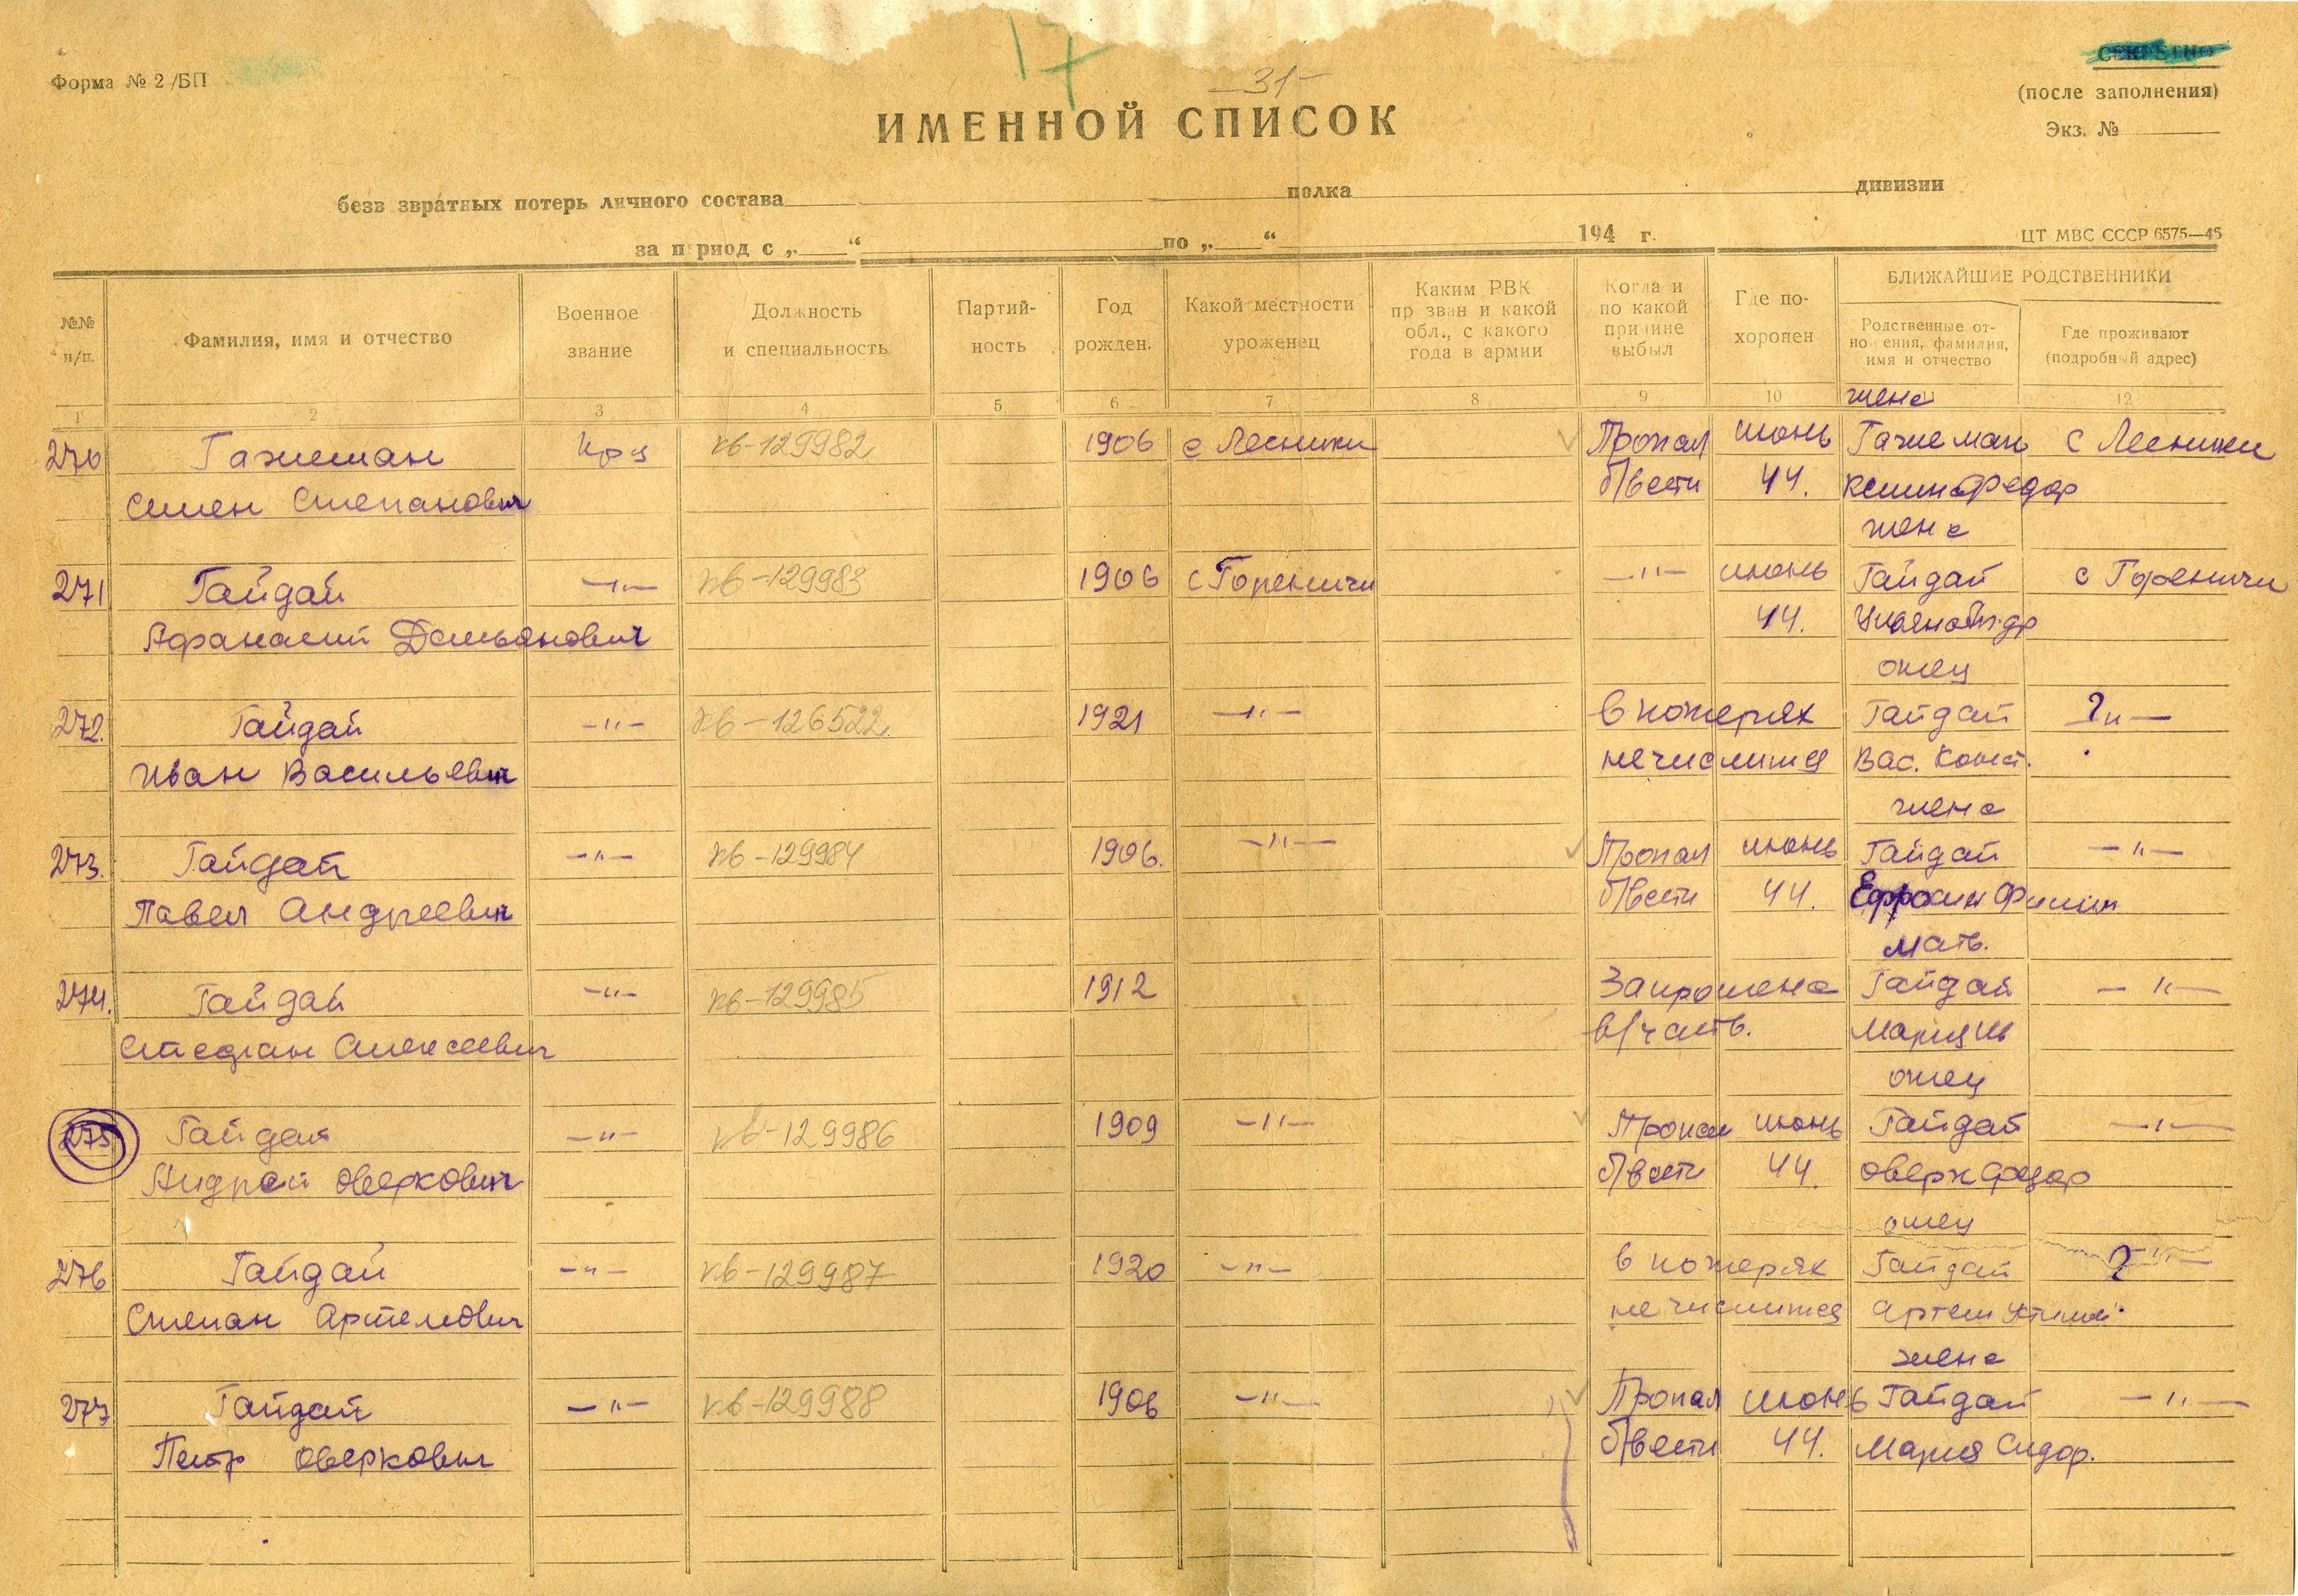 17
— 31 —
Форма № 2/БП
СЕКРЕТНО
(после заполнения)
Экз. №
ИМЕННОЙ СПИСОК
безв звратных потерь личного состава полка дивизии
за п риод с „ “ по „ “ 194 г.
ЦТ МВС СССР 6575—45
№№ п/п.
Фамилия, имя и отчество
Военное звание
Должность и специальность
Партий-ность
Год рожден.
Какой местности уроженец
Каким РВК пр зван и какой обл., с какого года в армии
Когда и по какой причине выбыл
Где по-хоронен
БЛИЖАЙШИЕ РОДСТВЕННИКИ
Родственные от-но ения, фамилия, имя и отчество
Где проживают (подробный адрес)
1 2 3 4 5 6 7 8 9 10 12
жена
270 Гажеман Кр-ц кв-129982 1906 с Лесники Пропал июнь Гажеман с Лесники
Семен Степанович б/вести 44. Федор
жена
271 Гайдай —"— кв-129983 1906 с Гореничи —"— июнь Гайдай с Гореничи
Афанасий Демьянович 44.
отец
272. Гайдай —"— кв-126522. 1921 —"— в потерях Гайдай ? —"—
Иван Васильевич не числится Вас. Конст.
жена
273. Гайдай —"— кв-129984 1906. —"— Пропал июнь Гайдай —"—
Павел Андреевич б/вести 44. Ефросин Филип
мать.
274. Гайдай —"— кв-129985 1912 Запрошена Гайдай —"—
Стефан Алексеевич в/часть. Мария
отец
275 Гайдай —"— кв-129986 1909 —"— Пропал июнь Гайдай —"—
Андрей Оверкович б/вести 44. Оверк Федор
отец
276 Гайдай —"— кв-129987 1920 —"— в потерях Гайдай ? —"—
Степан Артемович не числится Артем
жена
277 Гайдай —"— кв-129988 1906 —"— Пропал июнь Гайдай —"—
Петр Оверкович б/вести 44. Мария Сидор.